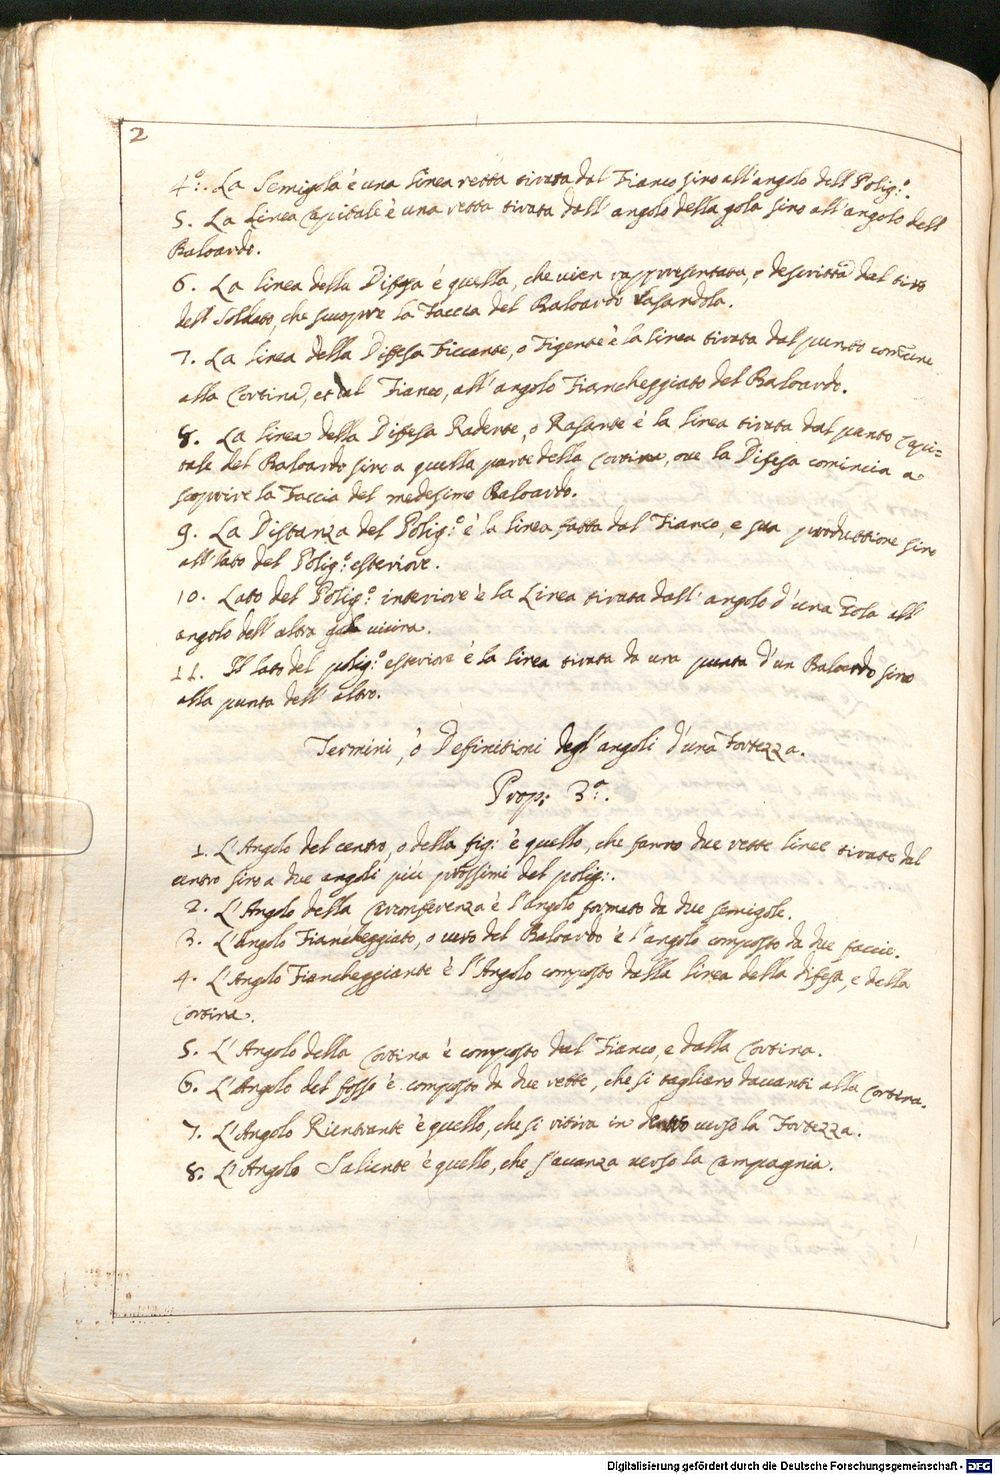 2
4.º La Semigola è una linea retta tirata dal Fianco sino all'angolo dell Polig.º
5. La Linea Capitale è una retta tirata dall'angolo della gola sino all'angolo dell
Baloardo.
6. La linea della Difesa è quella, che uien rappresentata, e descritta dal tiro
dell Soldato, che scuopre la Faccia del Baloardo rasandola.
7. La linea della Difesa Ficcante, o Figente è la linea tirata dal punto comune
alla Cortina, et dal Fianco, all'angolo Fiancheggiato del Baloardo.
8. La linea della Difesa Radente, o Rasante è la linea tirata dal punto Capi=
tale del Baloardo sino a quella parte della Cortina, oue la Difesa comincia a
scoprire la Faccia del medesimo Baloardo.
9. La Distanza del Polig.º è la linea fatta dal Fianco, e sua produttione sino
all'lato del Polig.º esteriore.
10. Lato del Polig.º interiore è la Linea tirata dall'angolo d'una Gola all
angolo dell'altra gola uicina.
11. Il lato del polig.º esteriore è la linea tirata da una punta d'un Baloardo sino
alla punta dell'altro.
Termini, ò Definitioni degl'angoli d'una Fortezza.
Prop: 3.ª
1. L'Angolo del centro, o della fig: è quello, che fanno due rette linee tirate dal
centro sino a due angoli più prossimi del polig:.
2. L'Angolo della Circonferenza è l'angolo formato da due semigole.
3. L'angolo Fiancheggiato, o uero del Baloardo è l'angolo composto da due faccie.
4. L'Angolo Fiancheggiante è l'Angolo composto dalla linea della difesa, e della
Cortina.
5. L'Angolo della Cortina è composto dal Fianco, e dalla Cortina.
6. L'Angolo del fosso è composto da due rette, che si tagliano dauanti alla Cortina.
7. L'Angolo Rientrante è quello, che si ritira in dentro uerso la Fortezza.
8. L'Angolo Saliente è quello, che s'auanza uerso la Campagnia.
Digitalisierung gefördert durch die Deutsche Forschungsgemeinschaft - DFG